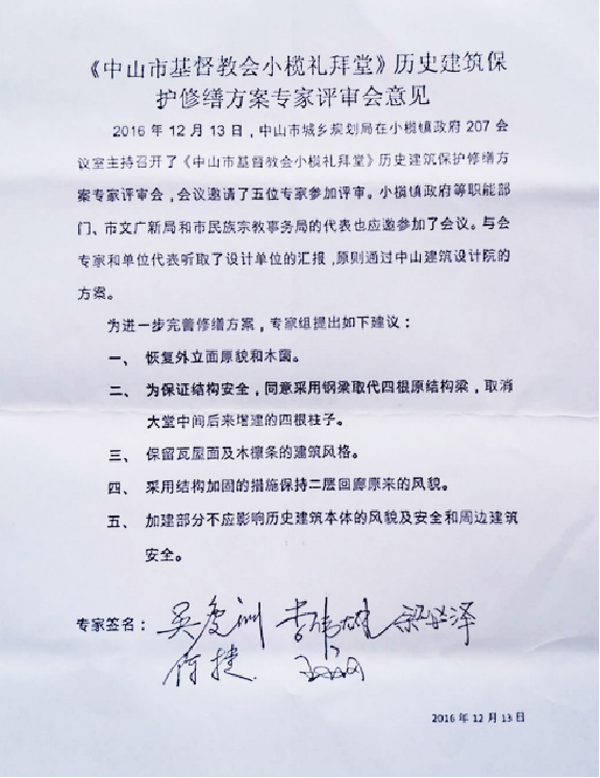 《中山市基督教会小榄礼拜堂》历史建筑保
护修缮方案专家评审会意见
2016 年 12 月 13 日，中山市城乡规划局在小榄镇政府 207 会
议室主持召开了《中山市基督教会小榄礼拜堂》历史建筑保护修缮方
案专家评审会，会议邀请了五位专家参加评审。小榄镇政府等职能部
门、市文广新局和市民族宗教事务局的代表也应邀参加了会议。与会
专家和单位代表听取了设计单位的汇报，原则通过中山建筑设计院的
方案。
为进一步完善修缮方案，专家组提出如下建议：
一、 恢复外立面原貌和木窗。
二、 为保证结构安全，同意采用钢梁取代四根原结构梁，取消
大堂中间后来增建的四根柱子。
三、 保留瓦屋面及木檩条的建筑风格。
四、 采用结构加固的措施保持二层回廊原来的风貌。
五、 加建部分不应影响历史建筑本体的风貌及安全和周边建筑
安全。
专家签名：
何捷
2016 年 12 月 13 日